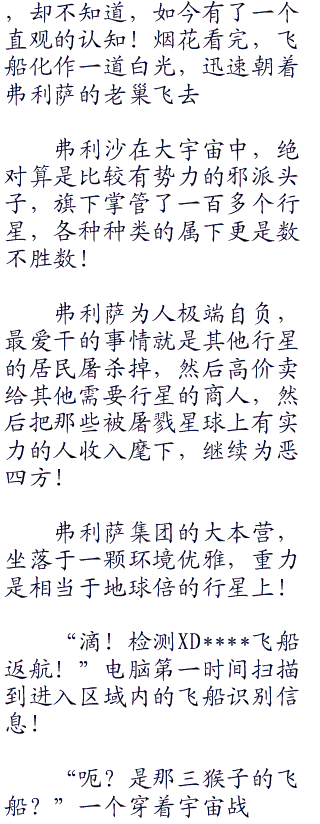 ，却不知道，如今有了一个
直观的认知！烟花看完，飞
船化作一道白光，迅速朝着
弗利萨的老巢飞去
弗利沙在大宇宙中，绝
对算是比较有势力的邪派头
子，旗下掌管了一百多个行
星，各种种类的属下更是数
不胜数！
弗利萨为人极端自负，
最爱干的事情就是其他行星
的居民屠杀掉，然后高价卖
给其他需要行星的商人，然
后把那些被屠戮星球上有实
力的人收入麾下，继续为恶
四方！
弗利萨集团的大本营，
坐落于一颗环境优雅，重力
是相当于地球倍的行星上！
“滴！检测XD****飞船
返航！”电脑第一时间扫描
到进入区域内的飞船识别信
息！
“呃？是那三猴子的飞
船？”一个穿着宇宙战